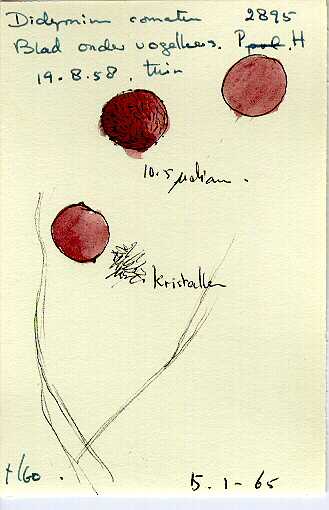 Didymium comatum 2895
Blad onder vogelkers. H
19.8.58. tuin
10.5 µ diam.
Kristallen
15.1-65